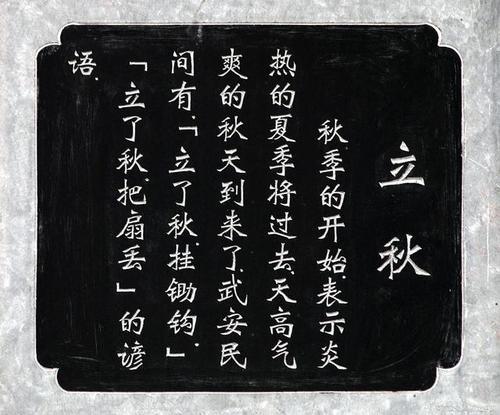 立秋
秋季的开始、表示炎
热的夏季将过去、天高气
爽的秋天到来了、武安民
间有、「立了秋、挂锄钩、」
「立了秋、把扇丢」的谚
语、